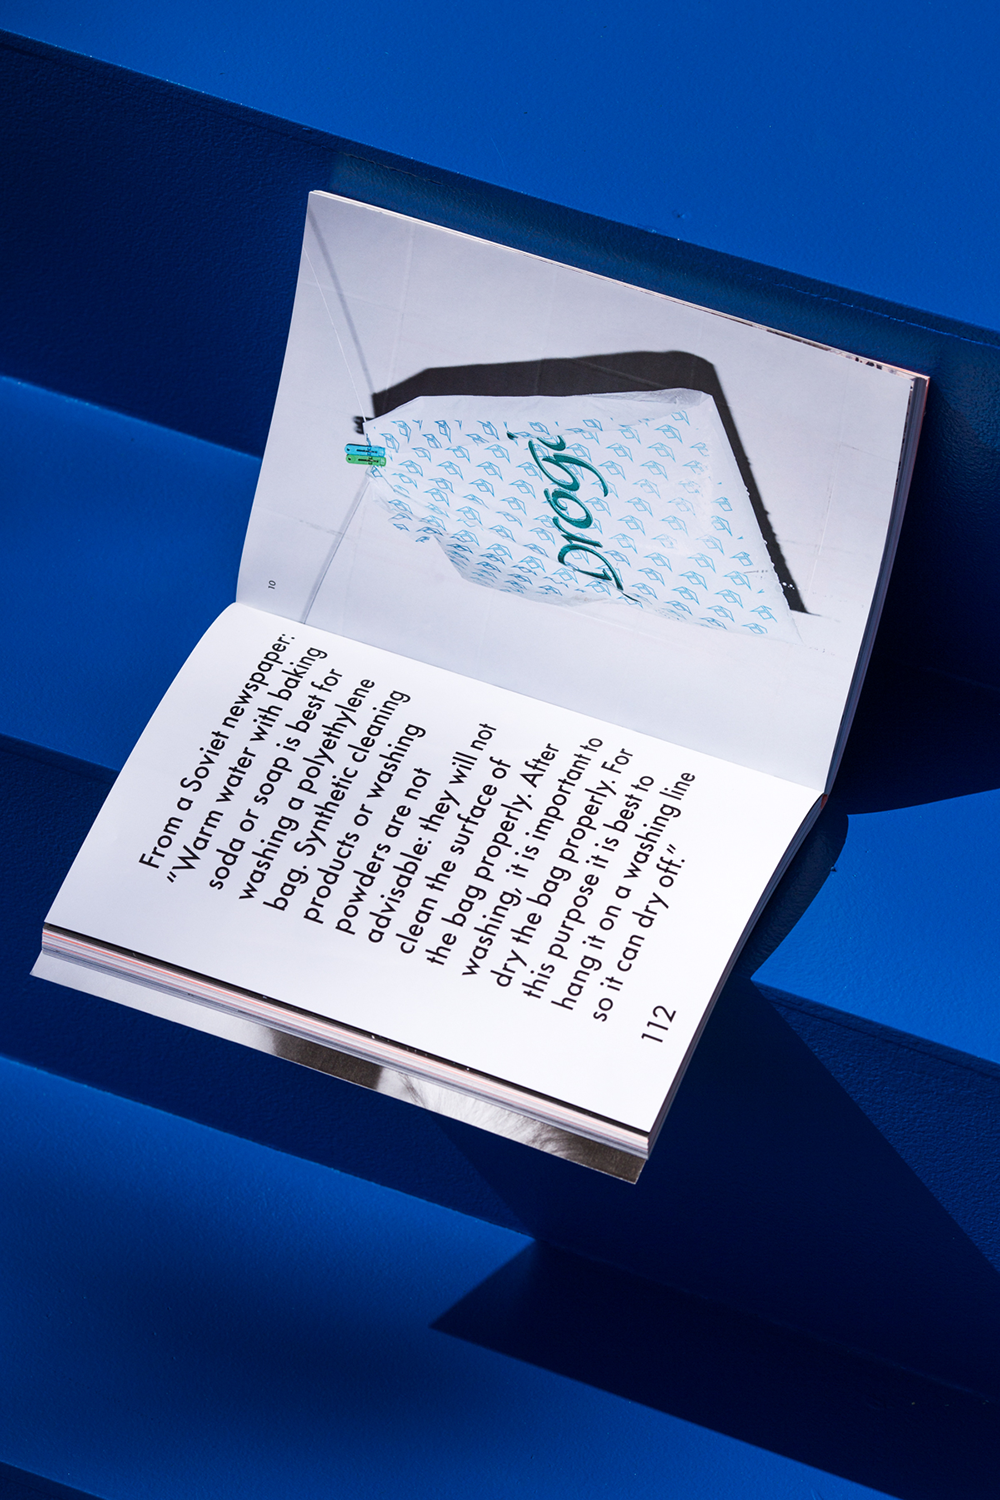 10
From a Soviet newspaper:
“Warm water with baking
soda or soap is best for
washing a polyethylene
bag. Synthetic cleaning
products or washing
powders are not
advisable: they will not
clean the surface of
the bag properly. After
washing, it is important to
dry the bag properly. For
this purpose it is best to
hang it on a washing line
so it can dry off.”
112